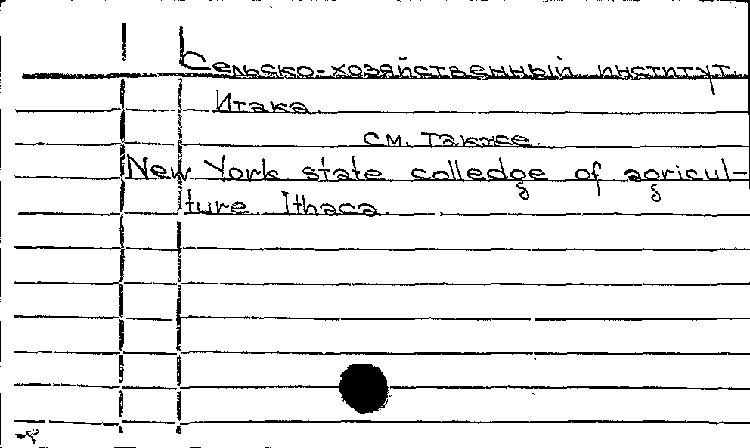 Сельско-хозяйственный институт.
Итака.
см. также.
New York state colledge of agricul-
ture Ithaca.